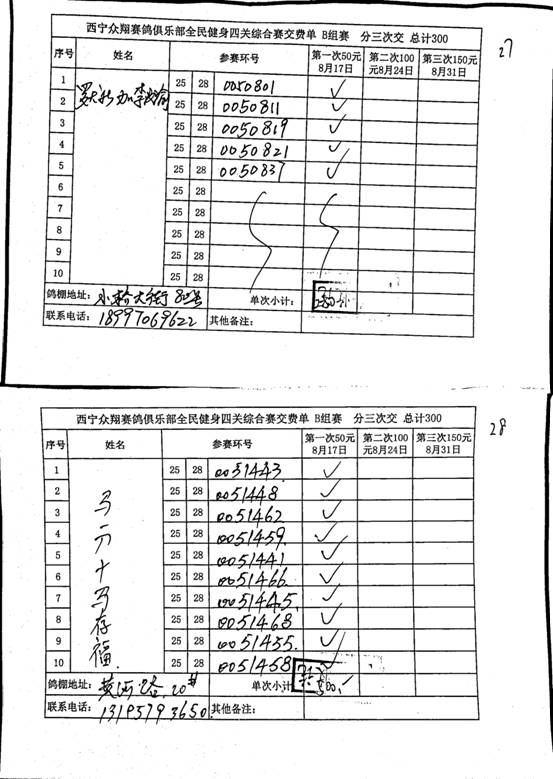 27
西宁众翔赛鸽俱乐部全民健身四关综合赛交费单 B组赛 分三次交 总计300
序号 姓名 参赛环号 第一次50元 8月17日 第二次100元8月24日 第三次150元 8月31日
1 25 28 0050801 ✓
2 25 28 0050811 ✓
3 25 28 0050819 ✓
4 25 28 0050821 ✓
5 25 28 0050837 ✓
6 25 28
7 25 28
8 25 28
9 25 28
10 25 28
鸽棚地址：小桥大街 单次小计：
联系电话：18997069622 其他备注：
28
西宁众翔赛鸽俱乐部全民健身四关综合赛交费单 B组赛 分三次交 总计300
序号 姓名 参赛环号 第一次50元 8月17日 第二次100元8月24日 第三次150元 8月31日
马六十马存福
1 25 28 0051443 ✓
2 25 28 0051448 ✓
3 25 28 0051462 ✓
4 25 28 0051459 ✓
5 25 28 0051441 ✓
6 25 28 0051466 ✓
7 25 28 0051445 ✓
8 25 28 0051468 ✓
9 25 28 0051455 ✓
10 25 28 0051458 ✓
鸽棚地址：黄河路20# 单次小计 500
联系电话：13195793650 其他备注：